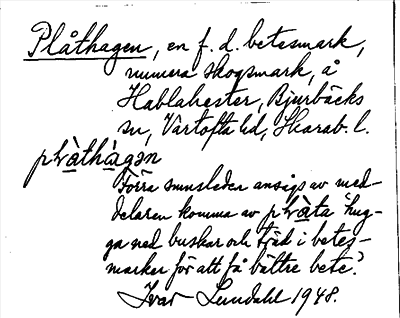 Plåthagen, en f. d. betesmark,
numera skogsmark, å
Hablahester, Bjurbäcks
sn, Vartofta hd, Skarab. l.
plàthàgən
Förra smnsleden ansågs av med-
delaren komma av plàta 'hug-
ga ned buskar och träd i betes-
marker för att få bättre bete'.
Ivar Lundahl 1948.